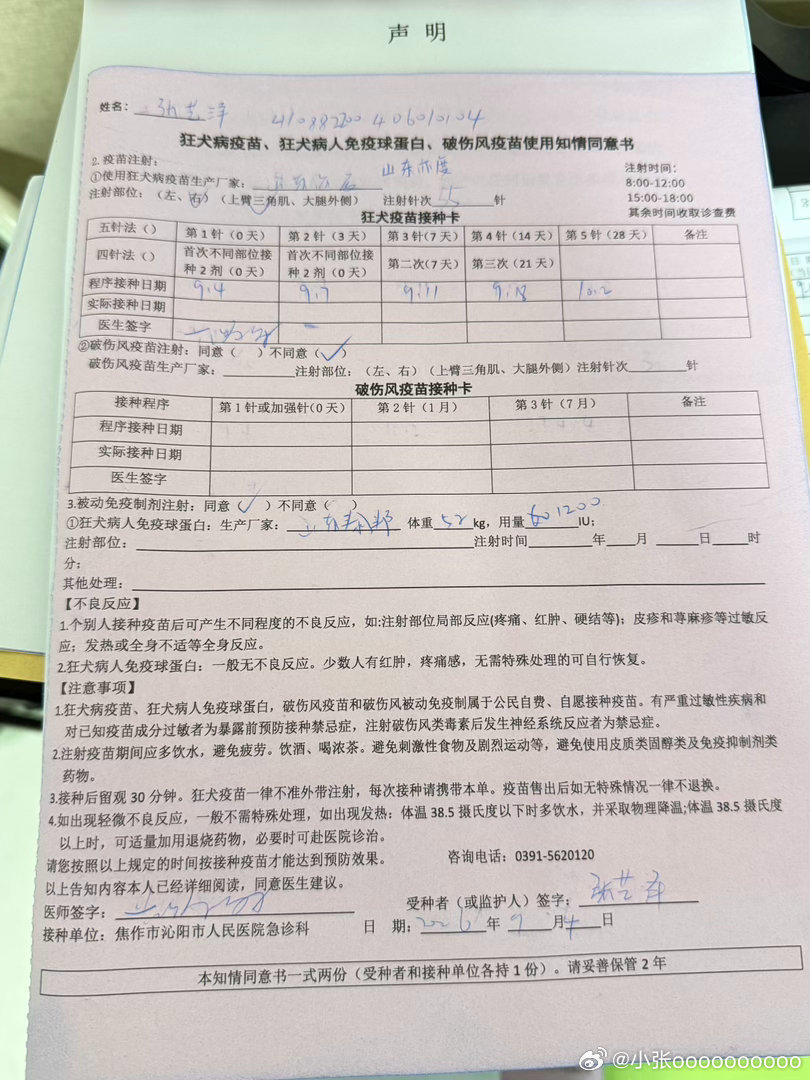 声 明
姓名：
狂犬病疫苗、狂犬病人免疫球蛋白、破伤风疫苗使用知情同意书
2. 疫苗注射：
①使用狂犬病疫苗生产厂家： 山东亦度
注射部位：（左、右）（上臂三角肌、大腿外侧） 注射针次 5 针
注射时间：
8:00-12:00
15:00-18:00
其余时间收取诊查费
狂犬疫苗接种卡
五针法（） 第1针（0天） 第2针（3天） 第3针(7天） 第4针（14天） 第5针（28天） 备注
四针法（） 首次不同部位接种2剂（0天） 首次不同部位接种2剂（0天） 第二次(7天） 第三次（21天）
程序接种日期 9.4 9.7 9.11 9.18 10.2
实际接种日期
医生签字
②破伤风疫苗注射：同意（ ）不同意（✓）
破伤风疫苗生产厂家： 注射部位：（左、右）（上臂三角肌、大腿外侧）注射针次 针
破伤风疫苗接种卡
接种程序 第1针或加强针(0天） 第2针（1月） 第3针（7月） 备注
程序接种日期
实际接种日期
医生签字
3.被动免疫制剂注射：同意（✓）不同意（ ）
①狂犬病人免疫球蛋白：生产厂家：山东泰邦 体重 52 kg，用量 1200 IU；
注射部位： 注射时间 年 月 日 时
分；
其他处理：
【不良反应】
1.个别人接种疫苗后可产生不同程度的不良反应，如:注射部位局部反应(疼痛、红肿、硬结等)；皮疹和荨麻疹等过敏反
应；发热或全身不适等全身反应。
2.狂犬病人免疫球蛋白：一般无不良反应。少数人有红肿，疼痛感，无需特殊处理的可自行恢复。
【注意事项】
1.狂犬病疫苗、狂犬病人免疫球蛋白，破伤风疫苗和破伤风被动免疫制属于公民自费、自愿接种疫苗。有严重过敏性疾病和
对已知疫苗成分过敏者为暴露前预防接种禁忌症，注射破伤风类毒素后发生神经系统反应者为禁忌症。
2.注射疫苗期间应多饮水，避免疲劳。饮酒、喝浓茶。避免刺激性食物及剧烈运动等，避免使用皮质类固醇类及免疫抑制剂类
药物。
3.接种后留观30分钟。狂犬疫苗一律不准外带注射，每次接种请携带本单。疫苗售出后如无特殊情况一律不退换。
4.如出现轻微不良反应，一般不需特殊处理，如出现发热：体温38.5摄氏度以下时多饮水，并采取物理降温;体温38.5摄氏度
以上时，可适量加用退烧药物，必要时可赴医院诊治。
请您按照以上规定的时间按接种疫苗才能达到预防效果。 咨询电话：0391-5620120
以上告知内容本人已经详细阅读，同意医生建议。
医师签字： 受种者（或监护人）签字：
接种单位：焦作市沁阳市人民医院急诊科 日 期：2026年 9 月 4 日
本知情同意书一式两份（受种者和接种单位各持1份）。请妥善保管2年
@小张oooooooooo